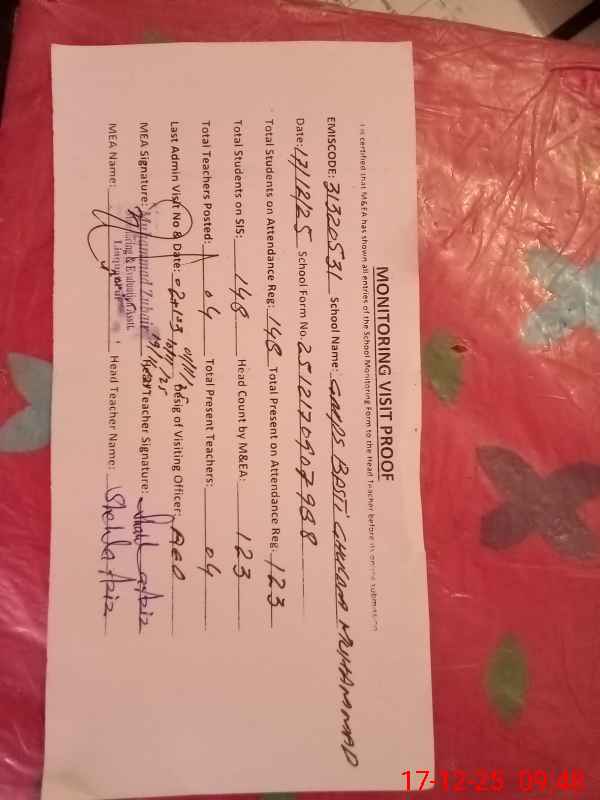 MONITORING VISIT PROOF
I is certified that M&EA has shown all entries of the School Monitoring Form to the Head Teacher before its online submission
EMISCODE: 31320531 School Name: GGPS BASTI GHULAM MUHAMMAD
Date: 17/12/25 School Form No. 2512170907988
Total Students on Attendance Reg: 148 Total Present on Attendance Reg: 123
Total Students on SIS: 148 Head Count by M&EA: 123
Total Teachers Posted: 04 Total Present Teachers: 04
Last Admin Visit No & Date: Desig of Visiting Officer: AEO
MEA Signature: Head Teacher Signature:
Muhammad Zubair
& Evaluation
MEA Name: Head Teacher Name: Shehla Aziz
17-12-25 09:48